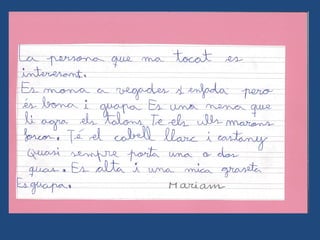 La persona que ma tocat es
interesont.
Es mona a vegades s'enfada pero
és bona i guapa Es una nena que
li agra els talons. Te els ulls marons
foscos. Té el cabell llarc i castany
Quasi sempre porta una o dos
quas. Es alta i una mica graseta
Es guapa. Mariam